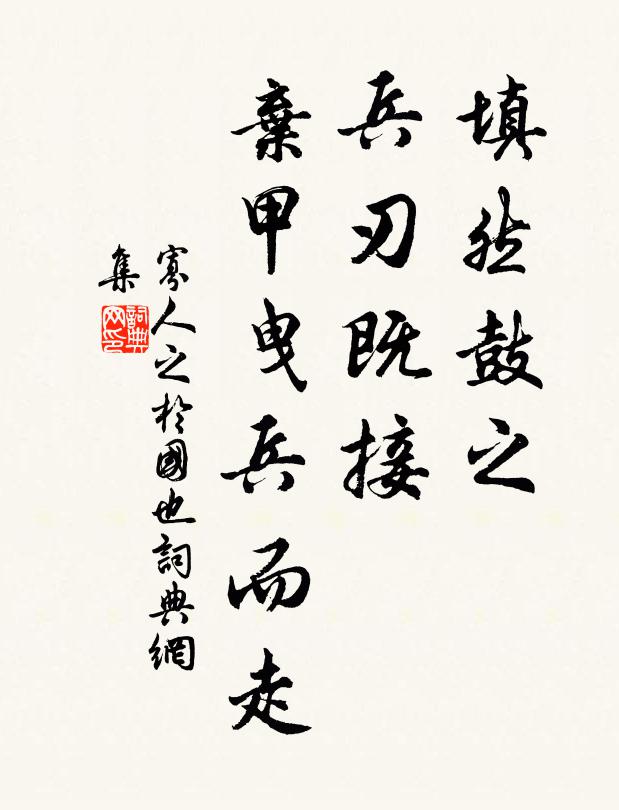 填然鼓之
兵刃既接
棄甲曳兵而走
寡人之於國也詞典網
集
詞典
网印